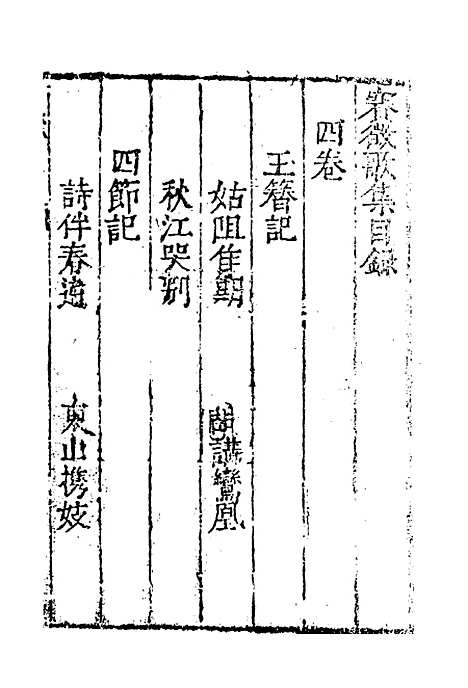 賽徵歌集目錄
四卷
玉簪記
姑阻佳期
詞講鸞凰
秋江哭別
四節記
詩伴春遊
東山携妓